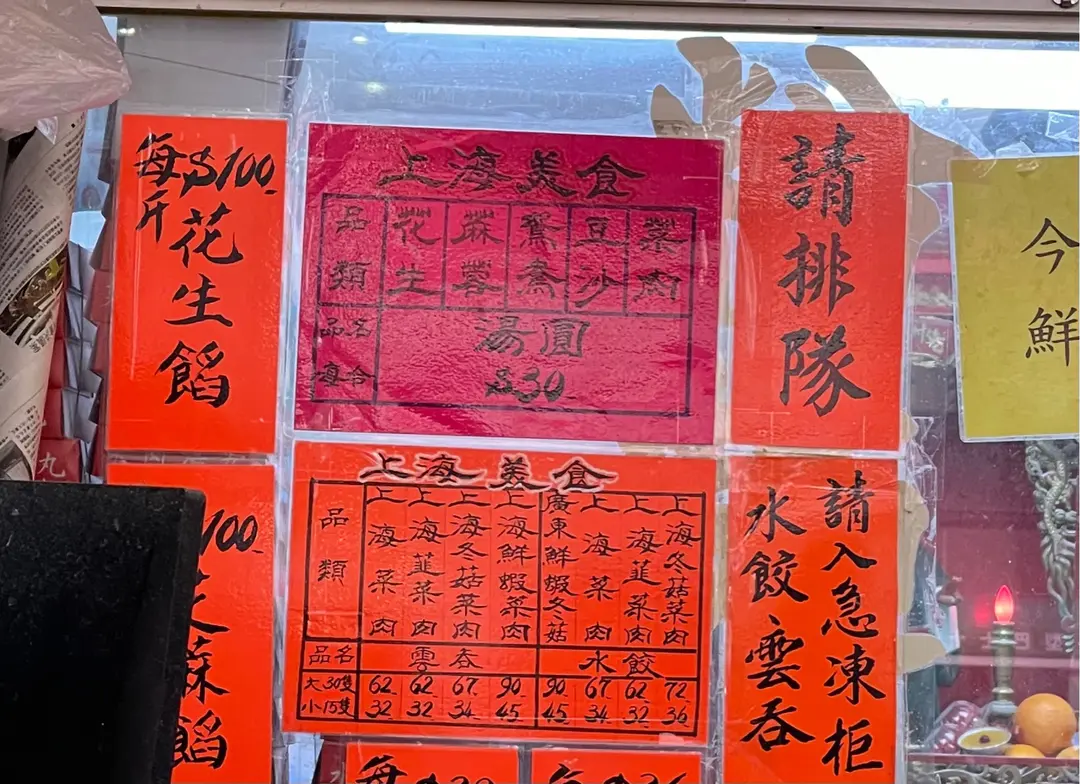 每斤
$100
花生餡
上海美食
品類 花生 麻蓉 豆沙 菜肉
品名 湯圓
30
請排隊
今
鮮
100
芝麻餡
上海美食
品類 上海菜肉 上海韮菜肉 上海冬菇菜肉 上海鮮蝦菜肉 廣東鮮蝦冬菇 上海菜肉 上海韮菜肉 上海冬菇菜肉
品名 雲吞 水餃
大30隻 62 62 67 90 90 67 62 72
小15隻 32 32 34 45 45 34 32 36
請入急凍柜
水餃雲吞
丸
每